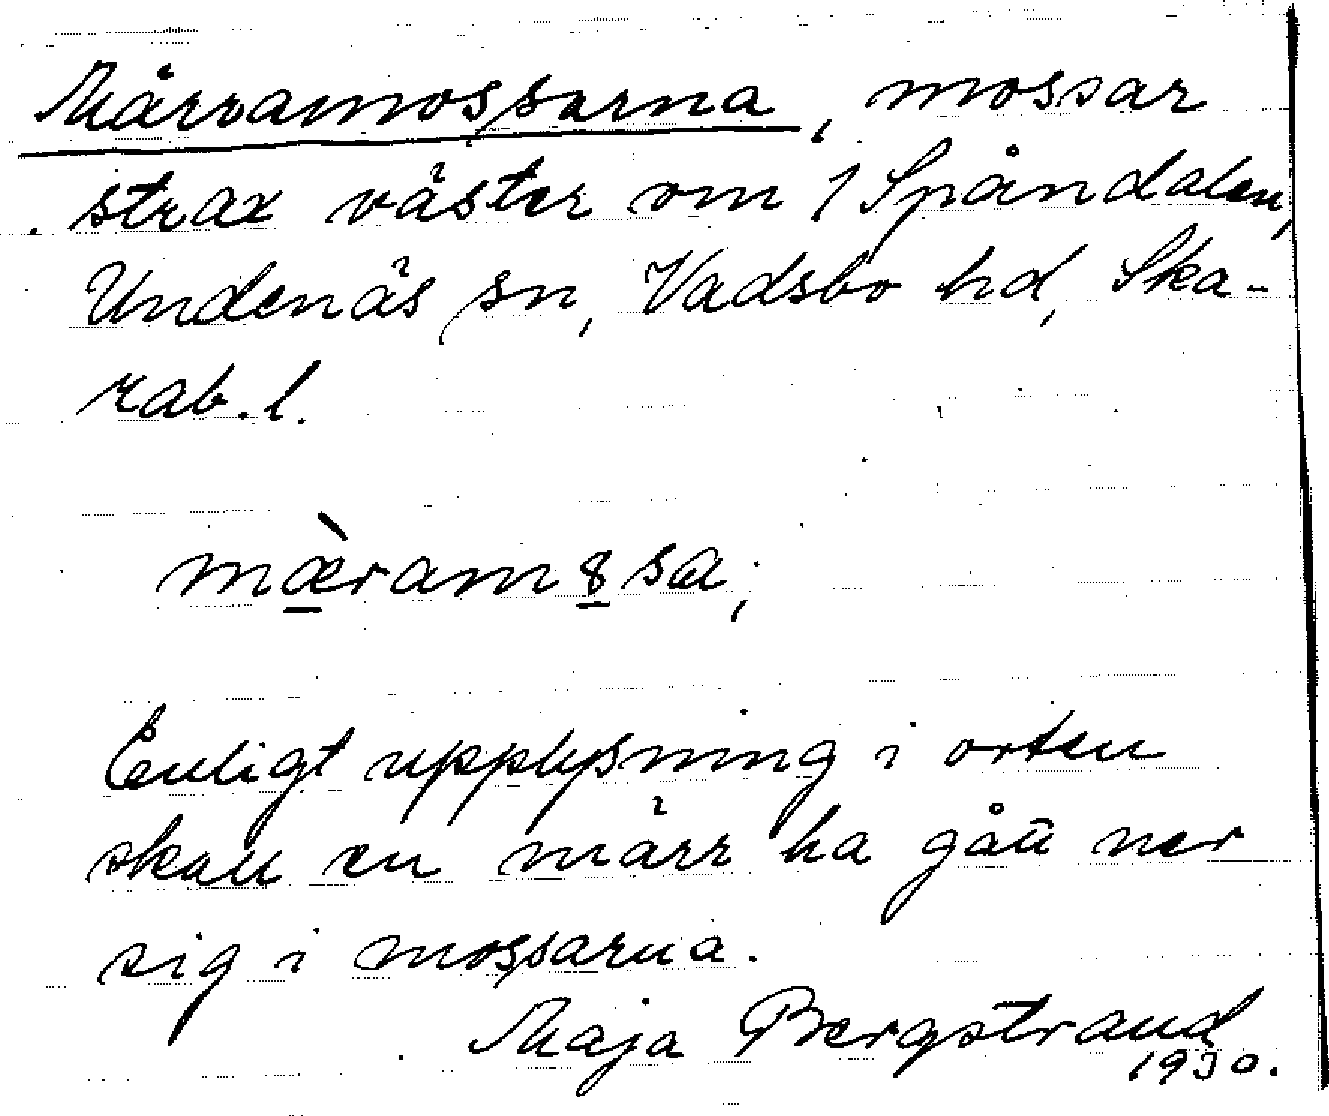 Märramossarna, mossar
strax väster om 1 Spåndalen,
Undenäs sn, Vadsbo hd, Ska-
rab. l.
mæ̀ramȣsa;
Enligt upplysning i orten
skall en märr ha gått ner
sig i mossarna.
Maja Bergstrand
1930.